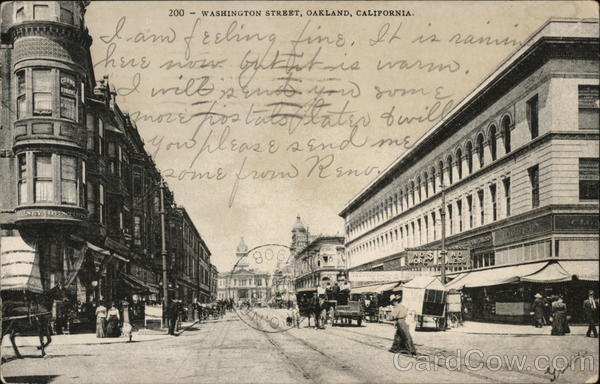 200 - WASHINGTON STREET, OAKLAND, CALIFORNIA.
I am feeling fine. It is raining
here now but it is warm.
I will send you some
more postals later & will
you please send me
some from Reno.
MUSIC CO.
CardCow.com